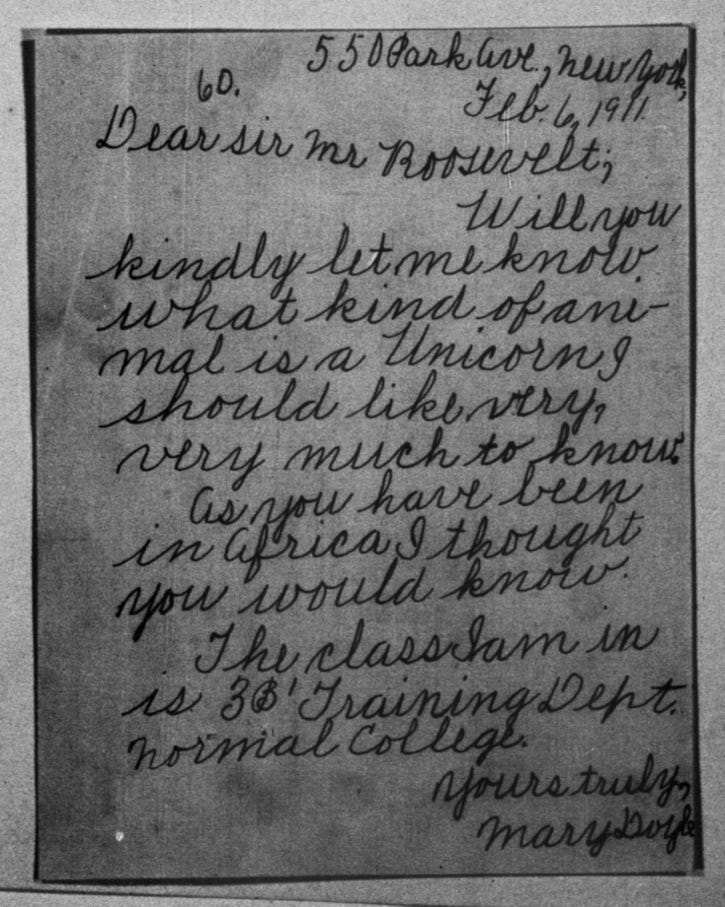 550 Park Ave., New York,
60.
Feb. 6, 1911.
Dear sir Mr Roosevelt;
Will you
kindly let me know
what kind of ani-
mal is a Unicorn I
should like very,
very much to know.
As you have been
in Africa I thought
you would know.
The class I am in
is 3B' Training Dept.
Normal College.
Yours truly,
Mary Doyle